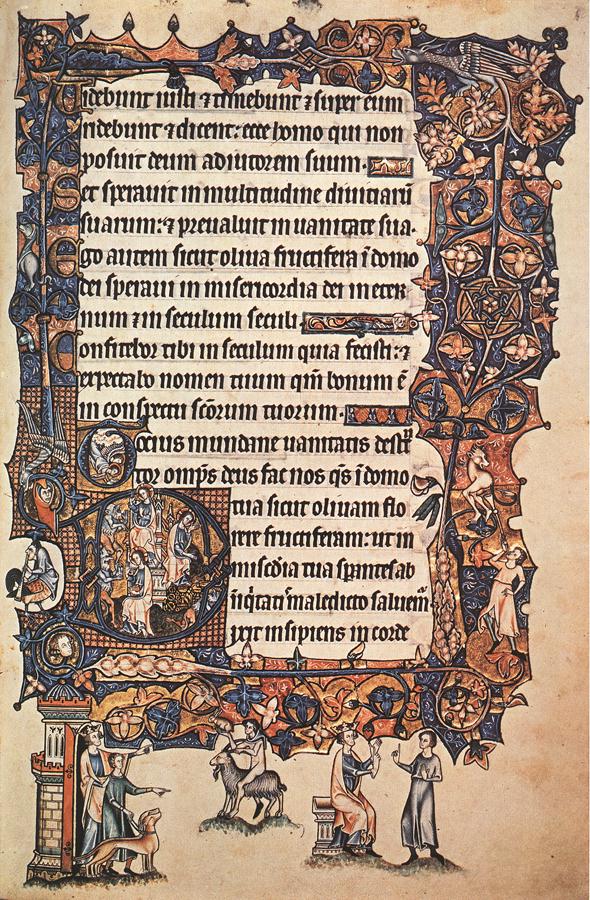 Uidebunt iusti ⁊ timebunt ⁊ super eum
ridebunt ⁊ dicent: ecce homo qui non
posuit deum adiutorem suum.
Set sperauit in multitudine diuiciarū
suarum: ⁊ preualuit in uanitate sua.
Ego autem sicut oliua fructifera ī domo
dei speraui in misericordia dei in eter
num ⁊ in seculum seculi.
Confitebor tibi in seculum quia fecisti: ⁊
expectabo nomen tuum qm̄ bonum ē
in conspectu sc̄orum tuorum.
Tocius mundane uanitatis destruc
tor omp̄s deus fac nos qs̄ ī domo
tua sicut oliuam flo
rere fructiferam: ut in
misc̄dia tua sp̄antes ab
īiq̄tatis maledicto saluem
Dixit insipiens in corde